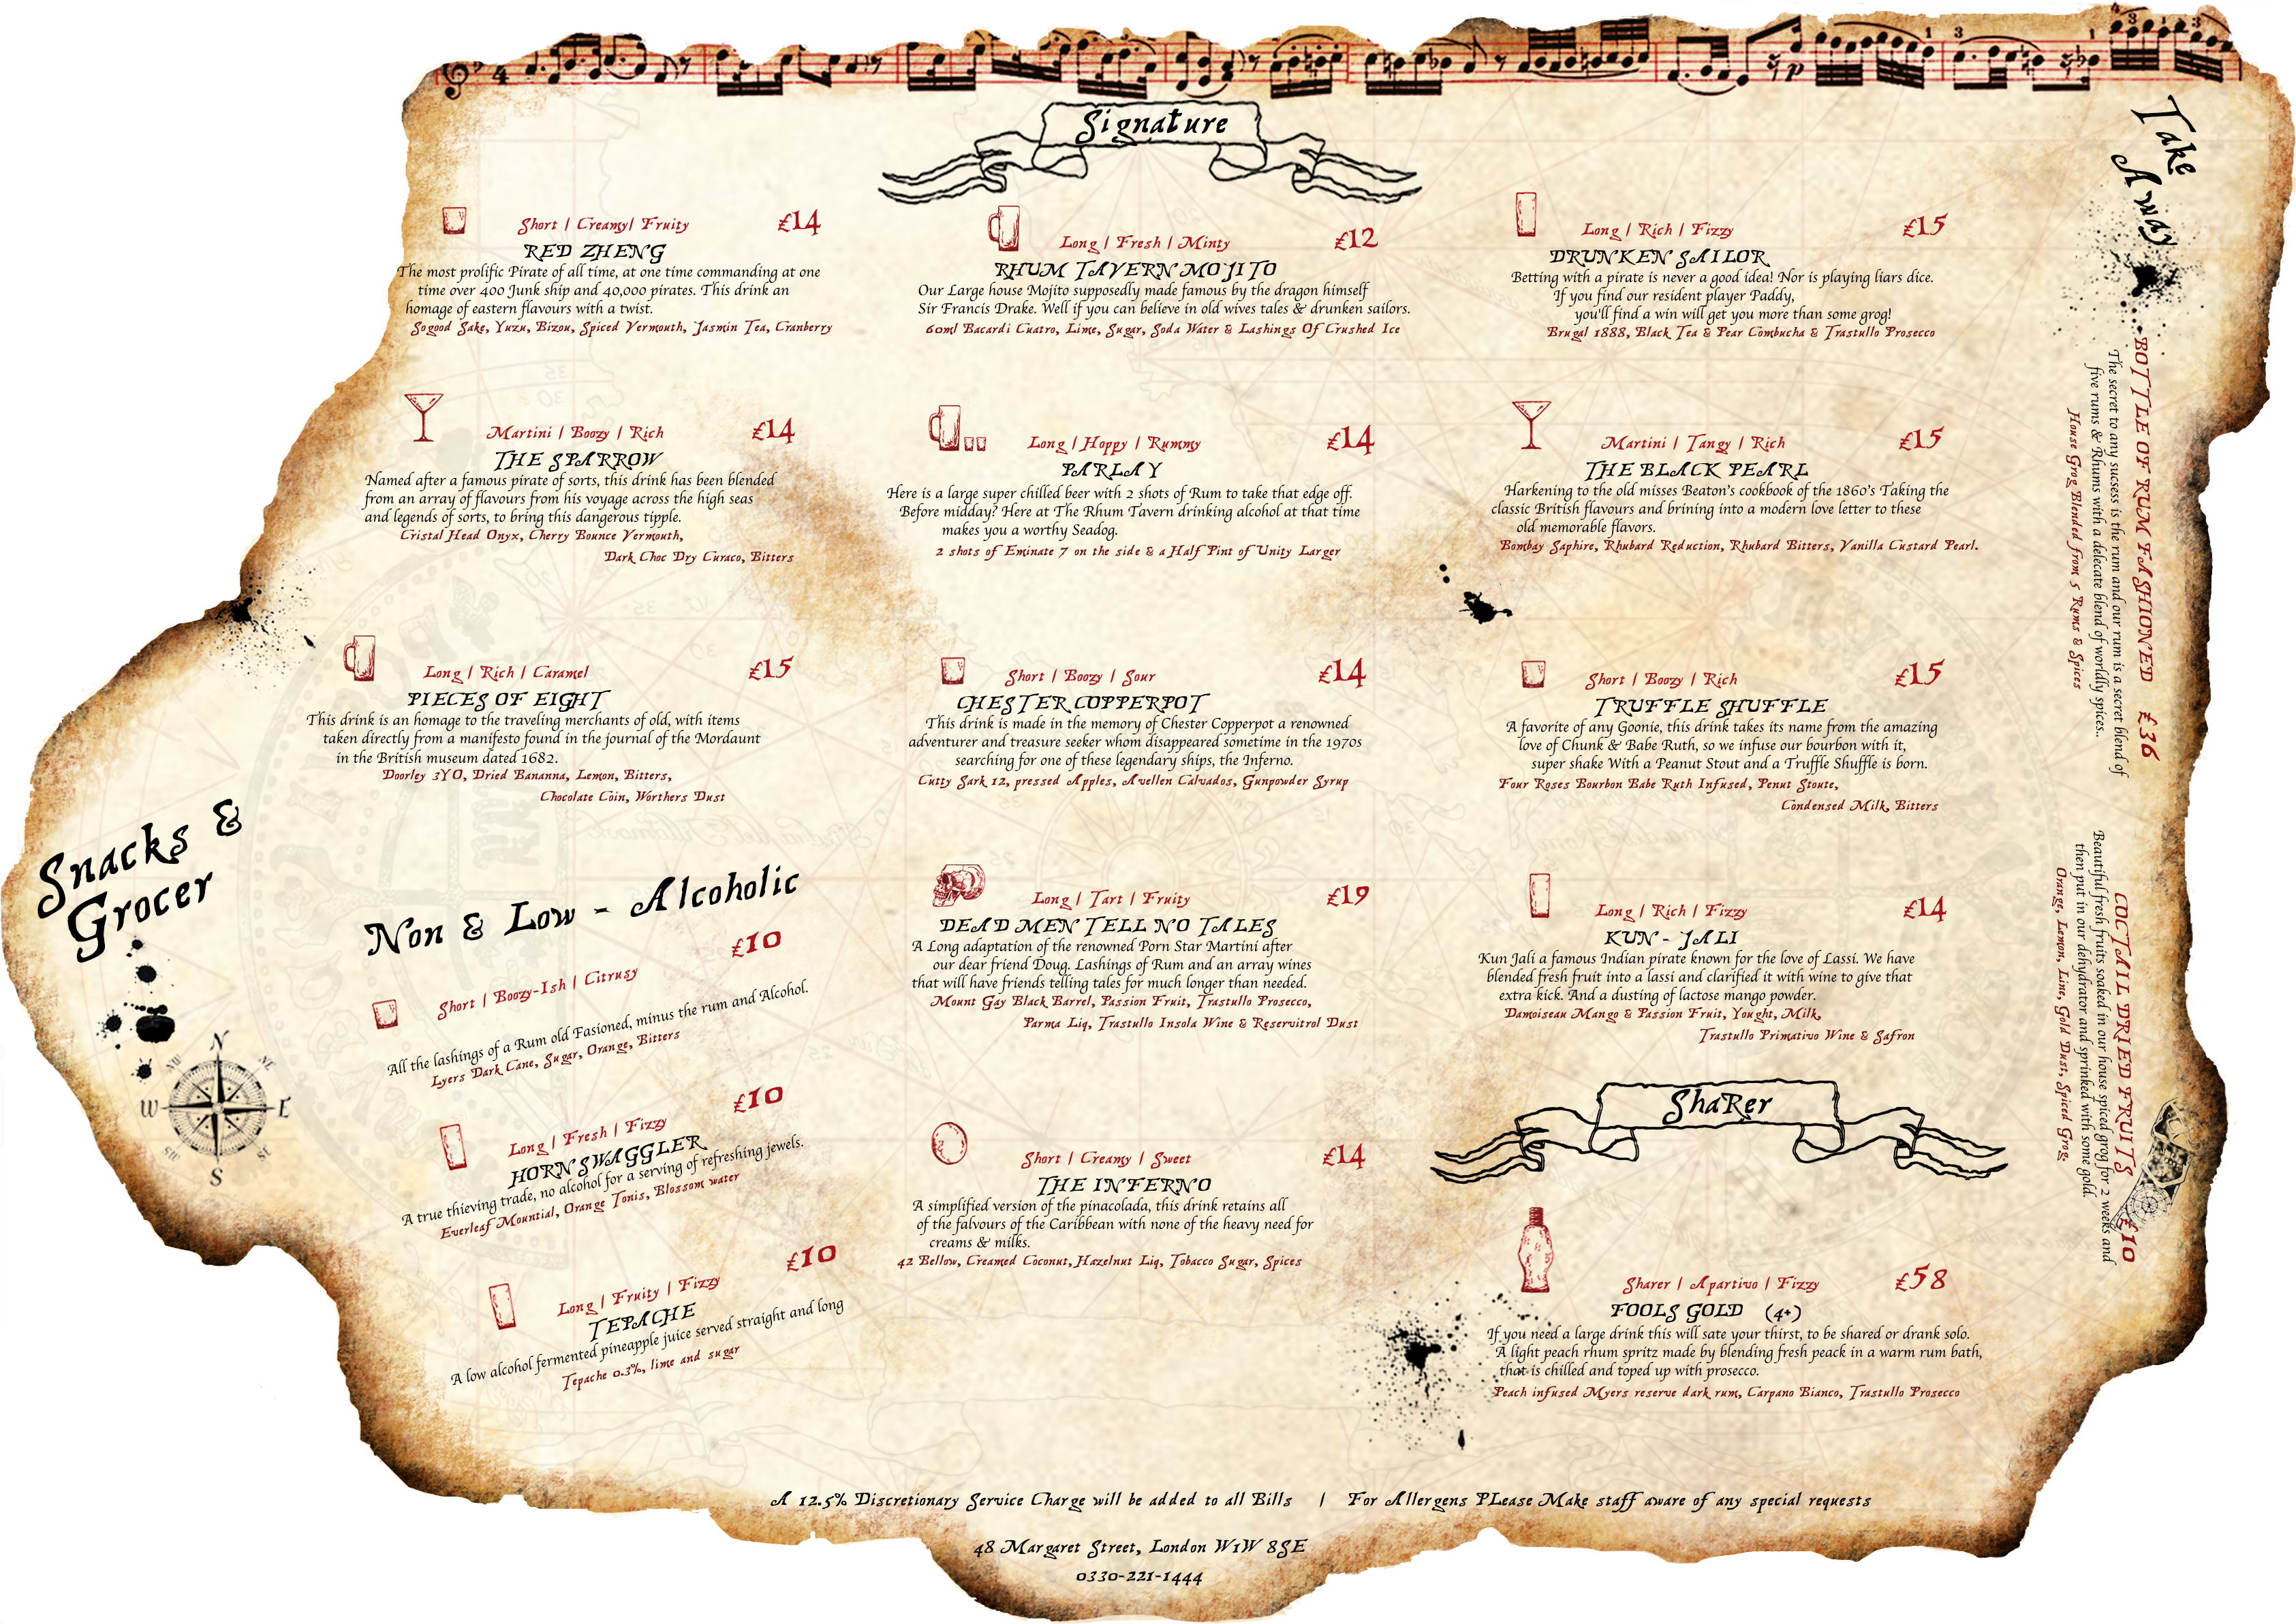 Signature
Short | Creamy| Fruity
£14
RED ZHENG
The most prolific Pirate of all time, at one time commanding at one
time over 400 Junk ship and 40,000 pirates. This drink an
homage of eastern flavours with a twist.
Sogood Sake, Yuzu, Bizou, Spiced Vermouth, Jasmin Tea, Cranberry
Martini | Boozy | Rich
£14
THE SPARROW
Named after a famous pirate of sorts, this drink has been blended
from an array of flavours from his voyage across the high seas
and legends of sorts, to bring this dangerous tipple.
Cristal Head Onyx, Cherry Bounce Vermouth,
Dark Choc Dry Curaco, Bitters
Long | Rich | Caramel
£15
PIECES OF EIGHT
This drink is an homage to the traveling merchants of old, with items
taken directly from a manifesto found in the journal of the Mordaunt
in the British museum dated 1682.
Doorley 3YO, Dried Bananna, Lemon, Bitters,
Chocolate Coin, Worthers Dust
Long | Fresh | Minty
£12
RHUM TAVERN MOJITO
Our Large house Mojito supposedly made famous by the dragon himself
Sir Francis Drake. Well if you can believe in old wives tales & drunken sailors.
60ml Bacardi Cuatro, Lime, Sugar, Soda Water & Lashings Of Crushed Ice
Long | Hoppy | Rummy
£14
PARLAY
Here is a large super chilled beer with 2 shots of Rum to take that edge off.
Before midday? Here at The Rhum Tavern drinking alcohol at that time
makes you a worthy Seadog.
2 shots of Eminate 7 on the side & a Half Pint of Unity Larger
Short | Boozy | Sour
£14
CHESTER COPPERPOT
This drink is made in the memory of Chester Copperpot a renowned
adventurer and treasure seeker whom disappeared sometime in the 1970s
searching for one of these legendary ships, the Inferno.
Cutty Sark 12, pressed Apples, Avellen Calvados, Gunpowder Syrup
Long | Tart | Fruity
£19
DEAD MEN TELL NO TALES
A Long adaptation of the renowned Porn Star Martini after
our dear friend Doug. Lashings of Rum and an array wines
that will have friends telling tales for much longer than needed.
Mount Gay Black Barrel, Passion Fruit, Trastullo Prosecco,
Parma Liq, Trastullo Insola Wine & Reservitrol Dust
Short | Creamy | Sweet
£14
THE INFERNO
A simplified version of the pinacolada, this drink retains all
of the falvours of the Caribbean with none of the heavy need for
creams & milks.
42 Bellow, Creamed Coconut, Hazelnut Liq, Tobacco Sugar, Spices
Long | Rich | Fizzy
£15
DRUNKEN SAILOR
Betting with a pirate is never a good idea! Nor is playing liars dice.
If you find our resident player Paddy,
you'll find a win will get you more than some grog!
Brugal 1888, Black Tea & Pear Combucha & Trastullo Prosecco
Martini | Tangy | Rich
£15
THE BLACK PEARL
Harkening to the old misses Beaton's cookbook of the 1860's Taking the
classic British flavours and brining into a modern love letter to these
old memorable flavors.
Bombay Saphire, Rhubard Reduction, Rhubard Bitters, Vanilla Custard Pearl.
Short | Boozy | Rich
£15
TRUFFLE SHUFFLE
A favorite of any Goonie, this drink takes its name from the amazing
love of Chunk & Babe Ruth, so we infuse our bourbon with it,
super shake With a Peanut Stout and a Truffle Shuffle is born.
Four Roses Bourbon Babe Ruth Infused, Penut Stoute,
Condensed Milk, Bitters
Long | Rich | Fizzy
£14
KUN - JALI
Kun Jali a famous Indian pirate known for the love of Lassi. We have
blended fresh fruit into a lassi and clarified it with wine to give that
extra kick. And a dusting of lactose mango powder.
Damoiseau Mango & Passion Fruit, Yought, Milk,
Trastullo Primativo Wine & Safron
ShaRer
Sharer | Apartivo | Fizzy
£58
FOOLS GOLD (4+)
If you need a large drink this will sate your thirst, to be shared or drank solo.
A light peach rhum spritz made by blending fresh peack in a warm rum bath,
that is chilled and toped up with prosecco.
Peach infused Myers reserve dark rum, Carpano Bianco, Trastullo Prosecco
Non & Low - Alcoholic
£10
Short | Boozy-Ish | Citrusy
All the lashings of a Rum old Fasioned, minus the rum and Alcohol.
Lyers Dark Cane, Sugar, Orange, Bitters
£10
Long | Fresh | Fizzy
HORNSWAGGLER
A true thieving trade, no alcohol for a serving of refreshing jewels.
Everleaf Mountial, Orange Tonis, Blossom water
£10
Long | Fruity | Fizzy
TEPACHE
A low alcohol fermented pineapple juice served straight and long
Tepache 0.3%, lime and sugar
Snacks &
Grocer
N
NE
E
SE
S
SW
W
NW
Take
Away
BOTTLE OF RUM FASHIONED £36
The secret to any sucsess is the rum and our rum is a secret blend of
five rums & Rhums with a delecate blend of worldly spices..
House Grog Blended from 5 Rums & Spices
COCTAIL DRIED FRUITS £10
Beautiful fresh fruits soaked in our house spiced grog for 2 weeks and
then put in our dehydrator and sprinked with some gold.
Orange, Lemon, Line, Gold Dust, Spiced Grog.
A 12.5% Discretionary Service Charge will be added to all Bills | For Allergens PLease Make staff aware of any special requests
48 Margaret Street, London W1W 8SE
0330-221-1444